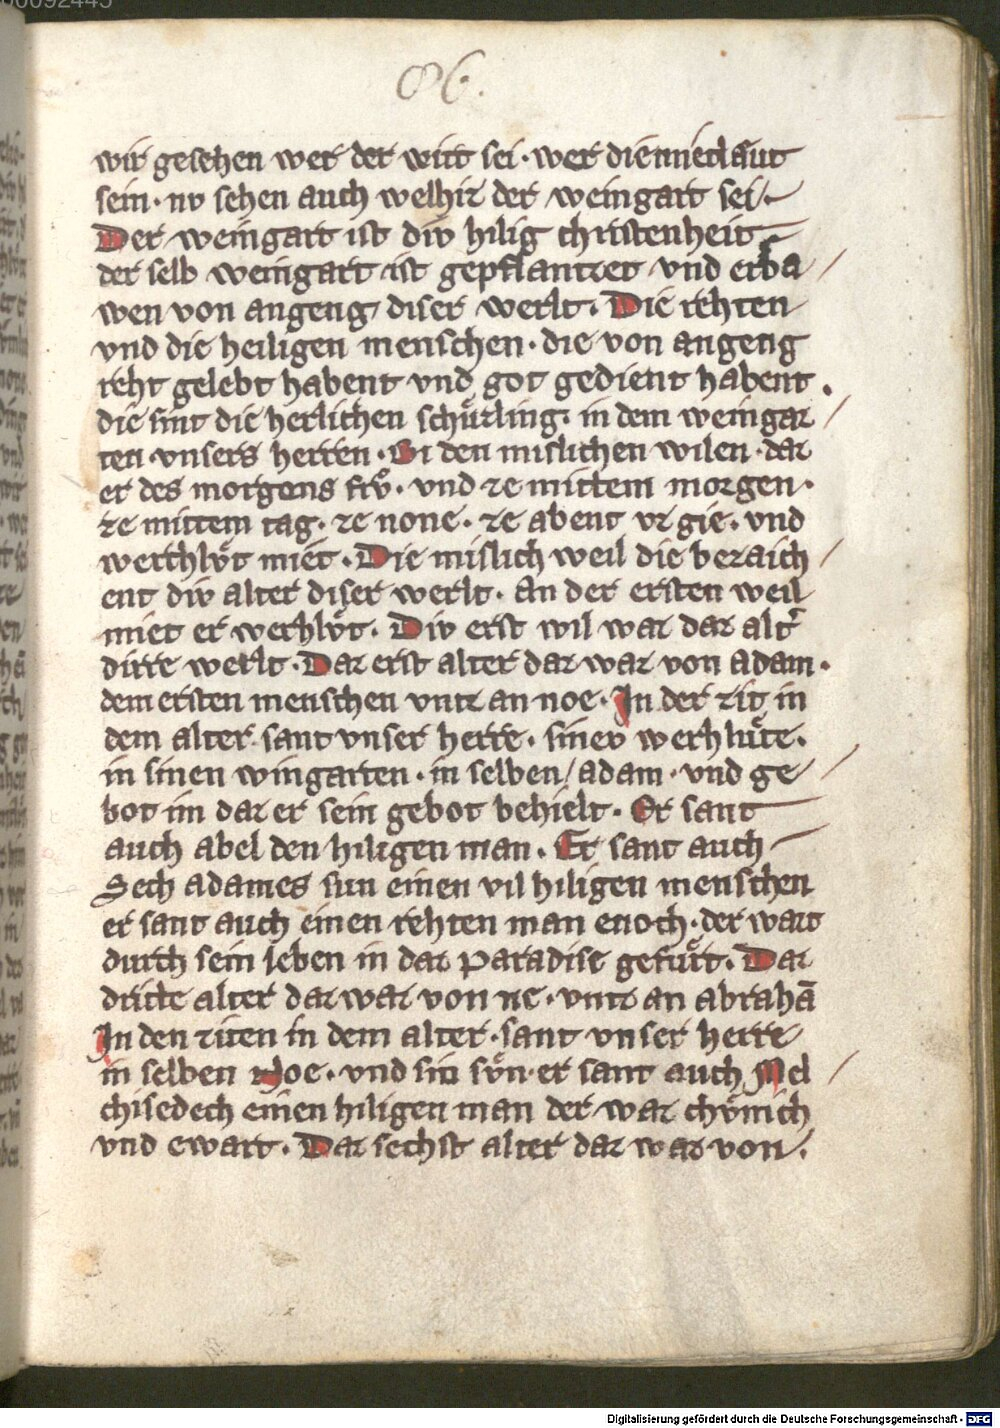 00092445
86.
wir gesehen wer der wirt sei · wer die mietlæut
sein · nv sehen auch welhiz der weingart sei ·
Der weingart ist div hilig christenheit
der selb weingart ist gepflantzet vnd erba /
wen von angeng diser werlt · Die rehten
vnd die heiligen menschen · die von angeng
reht gelebt habent vnd got gedient habent .
die sint die herlichen schu̍zling · in dem weingar /
ten vnsers herren · Bi den mislichen wilen · daz
er des morgens frvͦ · vnd ze mittem morgen ·
ze mittem tag · ze none · ze abent vz gie · vnd
werchlvͤt miet · Die mislich weil die bezaich /
ent div alter diser werlt · an der ersten weil
miet er werhlvͤt · Div erst wil waz daz altʼ
dirre werlt · Daz erst alter daz waz von adam ·
dem ersten menschen vntz an noe · In der zit in
dem alter sant vnser herre · siner werhluͤte ·
in sinen wingarten · in selben / adam · vnd ge /
bot im daz er sein gebot behielt · Er sant
auch abel den hiligen man · Er sant auch
Sech adames sun einen vil hiligen menschen
er sant auch einen rehten man enoch · der wart
durch sein leben in daz paradise gefuͤrt · Daz
dritte alter daz waz von ne · vntz an abrahā
In den ziten in dem alter · sant vnser herre
in selben Noe · vnd sin svͤn · er sant auch Mel /
chisedech einen hiligen man der waz chvͤnich
vnd ewart · Daz sechst alter daz waz von ·
Digitalisierung gefördert durch die Deutsche Forschungsgemeinschaft - DFG